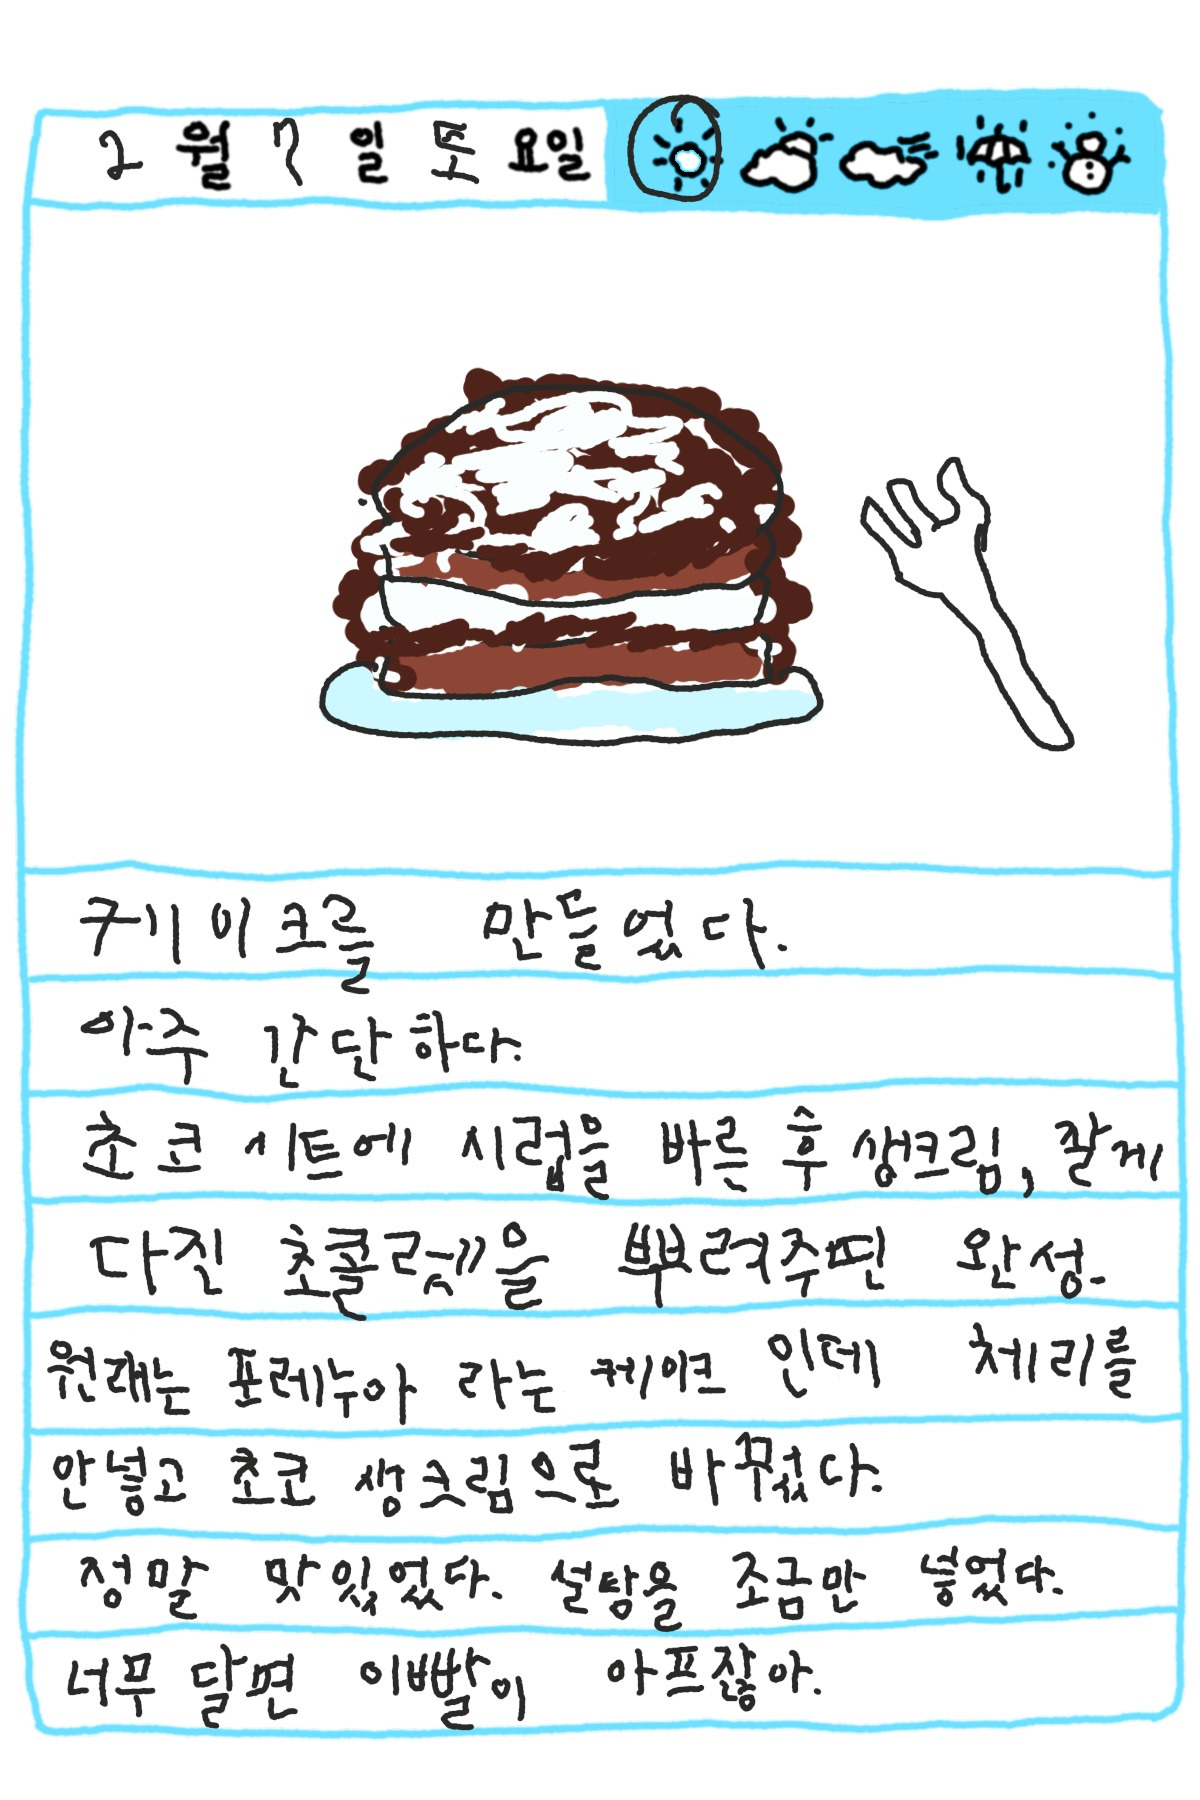 2월 7일 토요일
케이크를 만들었다.
아주 간단하다.
초코 시트에 시럽을 바른 후 생크림, 잘게
다진 초콜렛을 뿌려주면 완성.
원래는 포레누아 라는 케이크 인데 체리를
안넣고 초코 생크림으로 바꾸었다.
정말 맛있었다. 설탕을 조금만 넣었다.
너무 달면 이빨이 아프잖아.